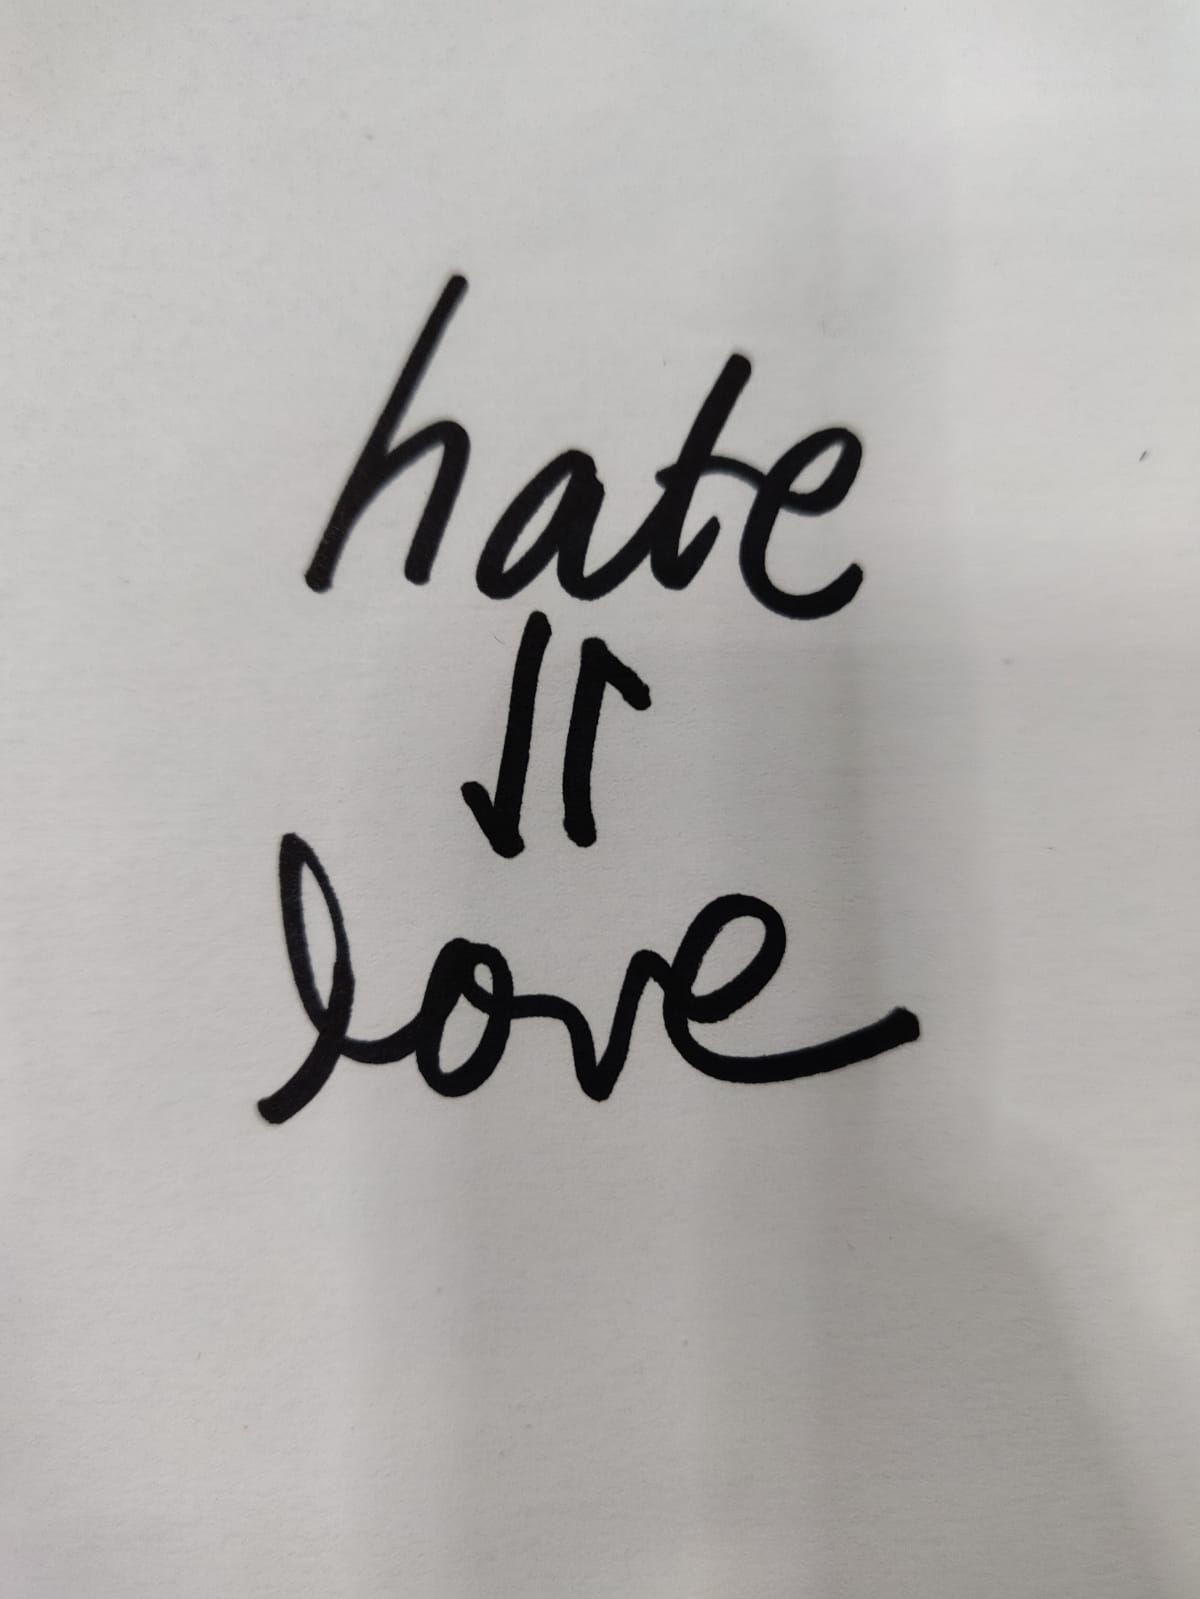 hate
⇃↾
love